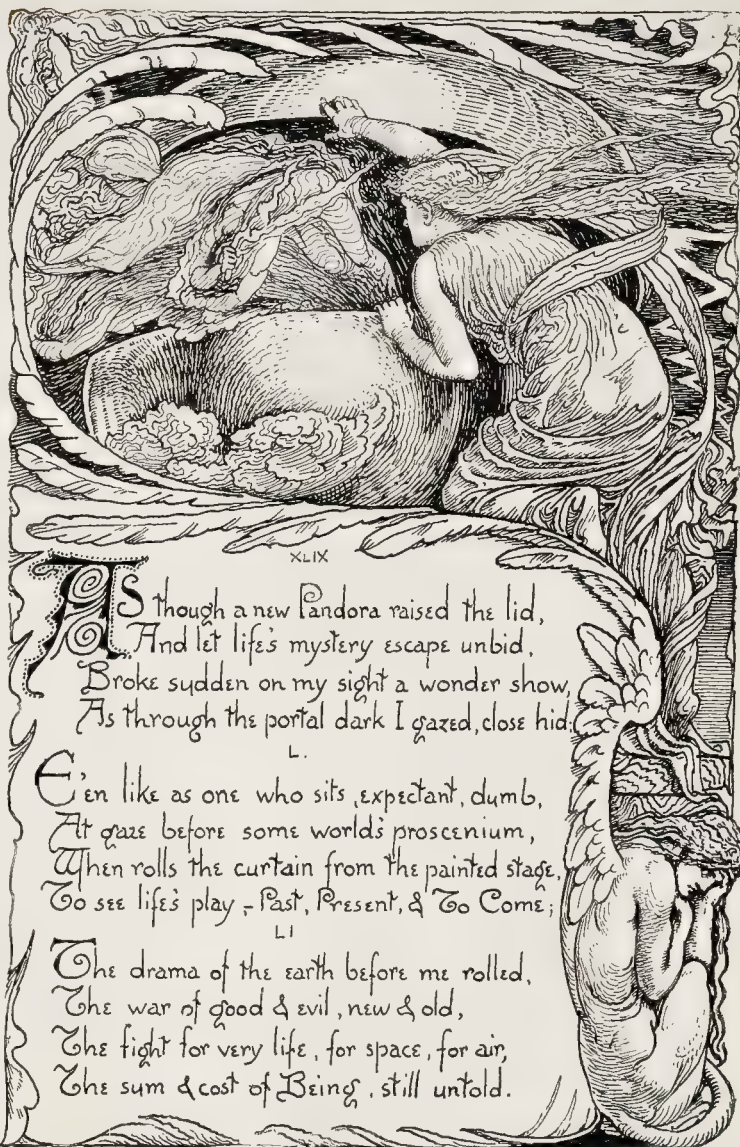 XLIX
As though a new Pandora raised the lid,
And let life's mystery escape unbid,
Broke sudden on my sight a wonder show,
As through the portal dark I gazed, close hid;
L.
E'en like as one who sits, expectant, dumb,
At gaze before some world's proscenium,
When rolls the curtain from the painted stage,
To see life's play,- Past, Present, & To Come;
LI
The drama of the earth before me rolled,
The war of good & evil, new & old,
The fight for very life, for space, for air,
The sum & cost of Being, still untold.